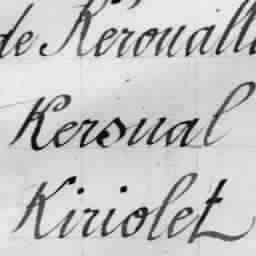 de Kerouall
Kersual
Kiriolet